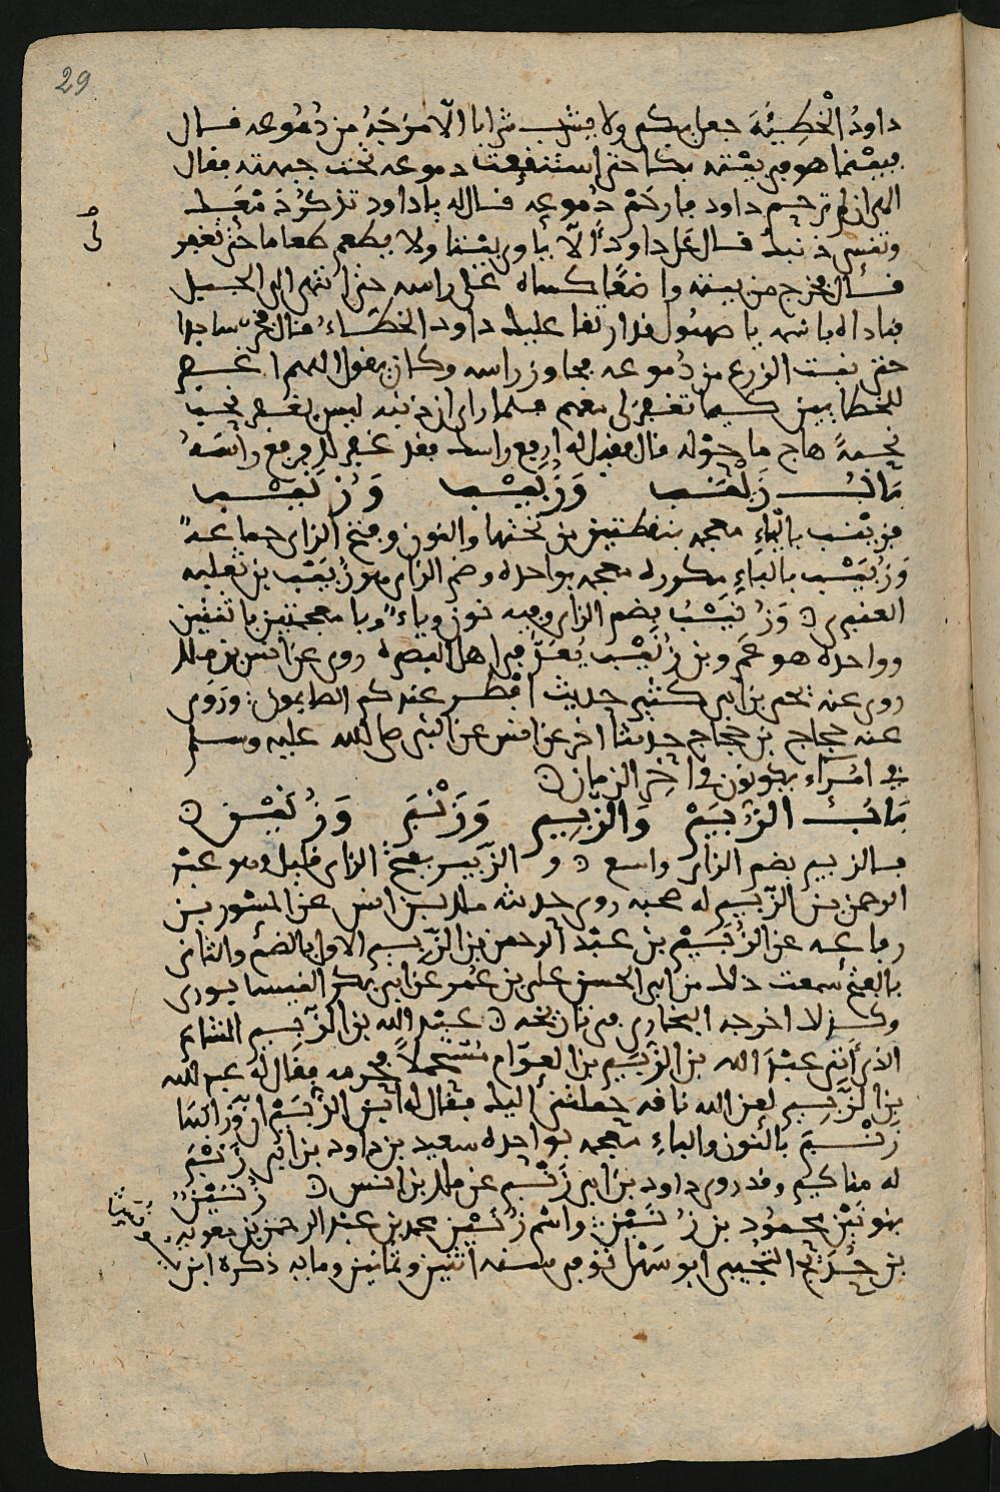 29
داودُ الْخَطِيَّةَ جعل يبكى ولا يشرب شرابا الّا مزجَهُ من دُمُوعه قال
فبيْنما هو فى بيْته بكا حتى استنقعت دموعه تحت جبهته فقال
الهى ان لم ترحم داود فارحَمْ دُموعه قال له يا داود تذكُرُ دَمْعَك
وتنسى ذنبك قال على داود ألّا يأوى بيْتا ولا يطعم طعاما حتى تغفر
قال فخرج من بيته واضعًا كساه على راسه حتى انتهى الى الجبل
فناداه يا صهيُون قد ارتقا عليك داود الخطّاء قال فخر ساجدا
حتى نبت الزرع من دُموعه فجاوز راسه وكان يقول اللهم اغفر
للخطايين كيما تغفر لى معهم فلما راى ان ذنبه ليس يغفر نحب
نحبةً هاج ما حوْله قال فقيل له ارفع راسك فقد غفر لك فرفع راسَهُ
بَابُ زَيْنَب وَزُبَيْب وَزُنَيْب
فزيْنب بالياءِ معجمه بنقطتين من تحتها والنون وفتح الزاى جماعةً
وَزُبَيْب بالباءِ مكررة معجمه بواحدة وضم الزاى هو زُبَيْب بن ثعلبه
العنبرى ۞ وَزُنَيْبُ بضم الزاى وفيه نون وياءٌ وبا معجمتين باثنتين
وواحدة هو عَمرو بن زُنَيْب يُعَدّ فى اهل البصرة روى عن انس بن ملك
روى عنه يحيى بن ابى كثير حديث افْطر عندكم الصايمون وَرَوَى
عنه حجاج بن حجاج حديثا اخر عن انس عن النبى صلى الله عليه وسلم
فى امُرَاء يكونون فى اٰخِر الزمان ۞
بَابُ الزُّبَيْر وَالزَّبِير وَزَنْبَر وَزُنَيْن ۞
فالزبير بضم الزاى واسع ۞ و الزَّبير بفتح الزاى قليل وهو عبْد
الرحمن بن الزَّبِير له صحبه روى حديثه ملك بن انس عن المسْور بن
رفاعه عن الزُّبَيْر بن عبْد الرحمن بن الزَّبِير الاول بالضم والثانى
بالفتح سمعت ذلك من ابى الحسن على بن عُمَر عن ابى بكر النيسابورى
وكذلك اخرجه البخارى فى تاريخه ۞ عبْد الله بن الزَّبِير الشاعر
الذى أتى عبْدَ الله بن الزُّبَيْر بن العوّام مُسْتَحْمِلاً فحرمه فقال له عبد الله
بن الزَّبِير لعن الله ناقه حملتْنى اليك فقال له ابن الزُّبَيْر ان ورَاكبَها
زَنْبَر بالنون والباءِ معجمه بواحده سعيد بن داود بن ابى زَنْبَر
له مناكير وقد روى داود بن ابى زَنْبَر عن ملك بن انس ۞ زُنَيْن
بنونيْن محمود بن زُنَيْن واسْم زُنَيْن محمد بن عبْد الرحمن بن معويه
بن حُدَيْج التُجيبى ابو سَهْل توفى سنه اثنتين وثمانين ومايه ذكره ابن